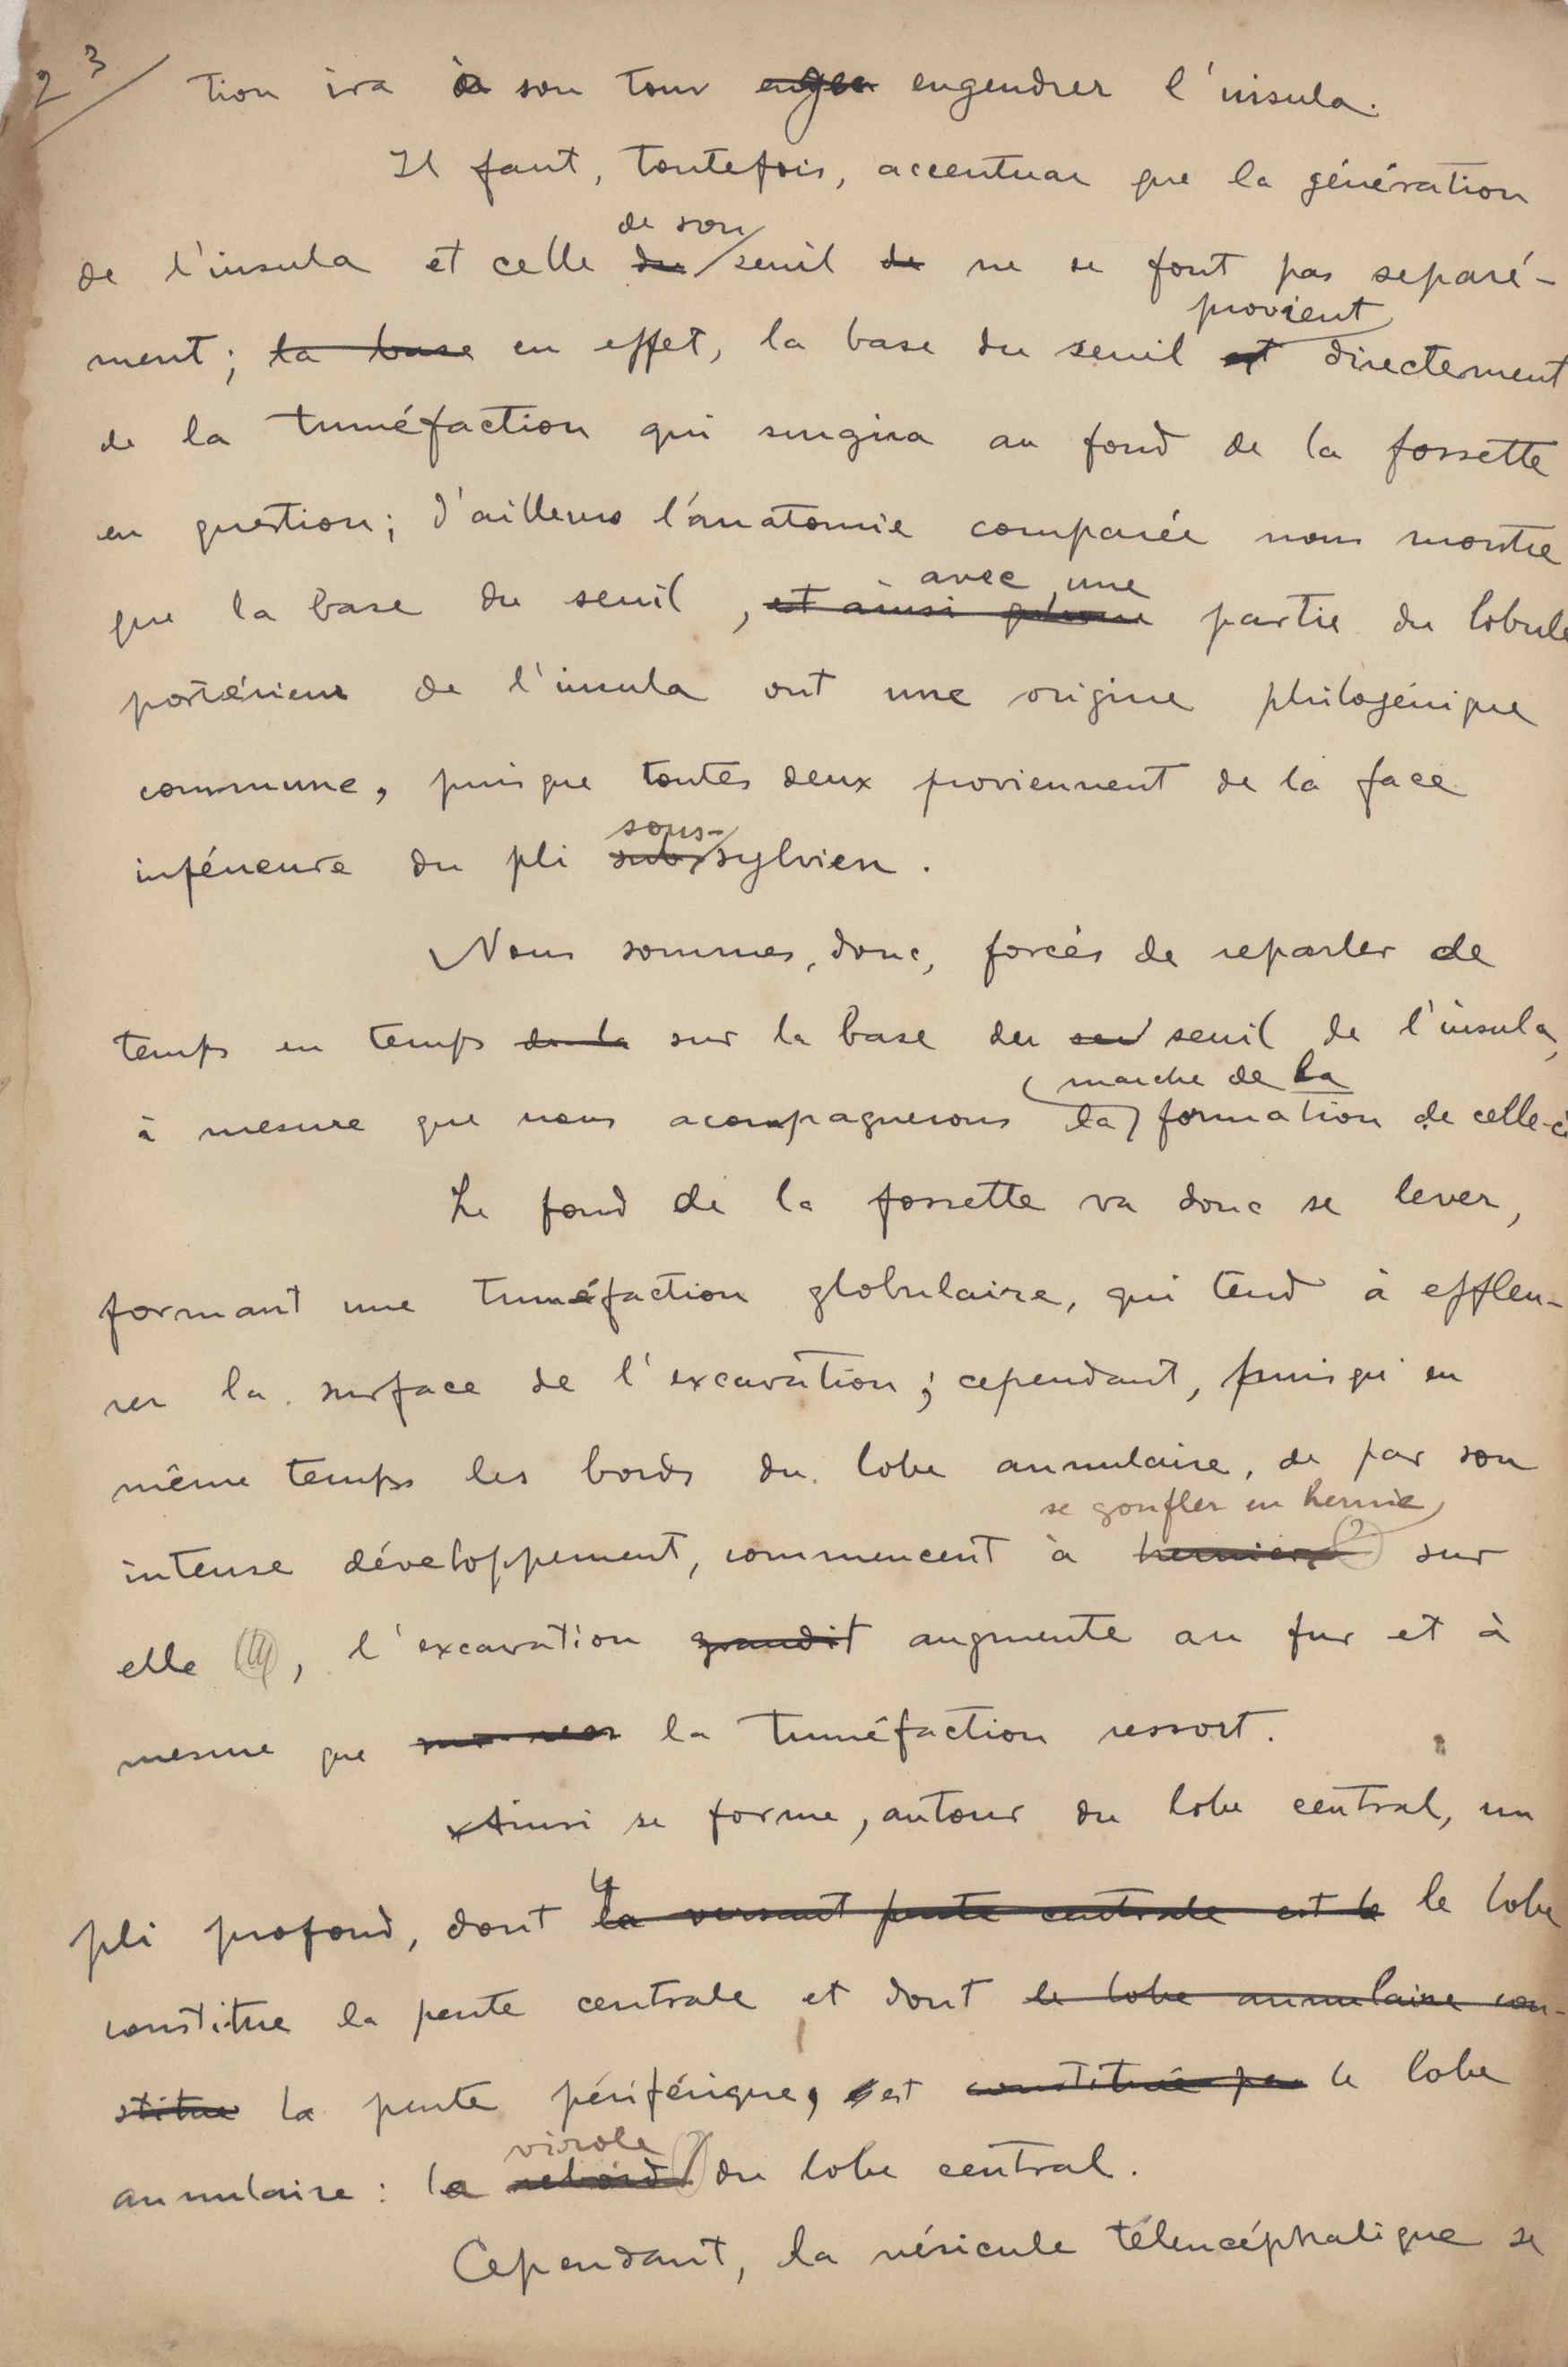 23/
tion ira à son tour engendrer l'insula.
Il faut, toutefois, accentuar que la génération
de son
de l'insula et celle du seuil de ne se font pas separé-
provient
ment; la base en effet, la base du seuil est directement
de la tuméfaction qui surgira au fond de la fossette
en question; d'ailleurs l'anatomie comparée nous montre
avec une
que la base du seuil, et ainsi partie du lobule
postérieur de l'insula ont une origine philogénique
commune, puisque toutes deux proviennent de la face
sous-
inférieure du pli sub sylvien.
Nous sommes, donc, forcés de reparler de
temps en temps de la sur la base du seu seuil de l'insula,
marche de la
à mesure que nous acompagnerons la formation de celle-ci
Le fond de la fossette va donc se lever,
formant une tuméfaction globulaire, qui tend à effleu-
rer la surface de l'excavation; cependant, puisqu'en
même temps les bords du lobe annulaire, de par son
se gonfler en hernie
intense développement, commencent à hernier (?) sur
elle, l'excavation grandit augmente au fur et à
mesure que la tuméfaction ressort.
Ainsi se forme, autour du lobe central, un
pli profond, dont la versant pente centrale est le le lobe
constitue la pente centrale et dont le lobe annulaire con-
stitue la pente périférique, est constituée par le lobe
virole
annulaire: la rebord (?) du lobe central.
Cependant, la vésicule télencéphalique se